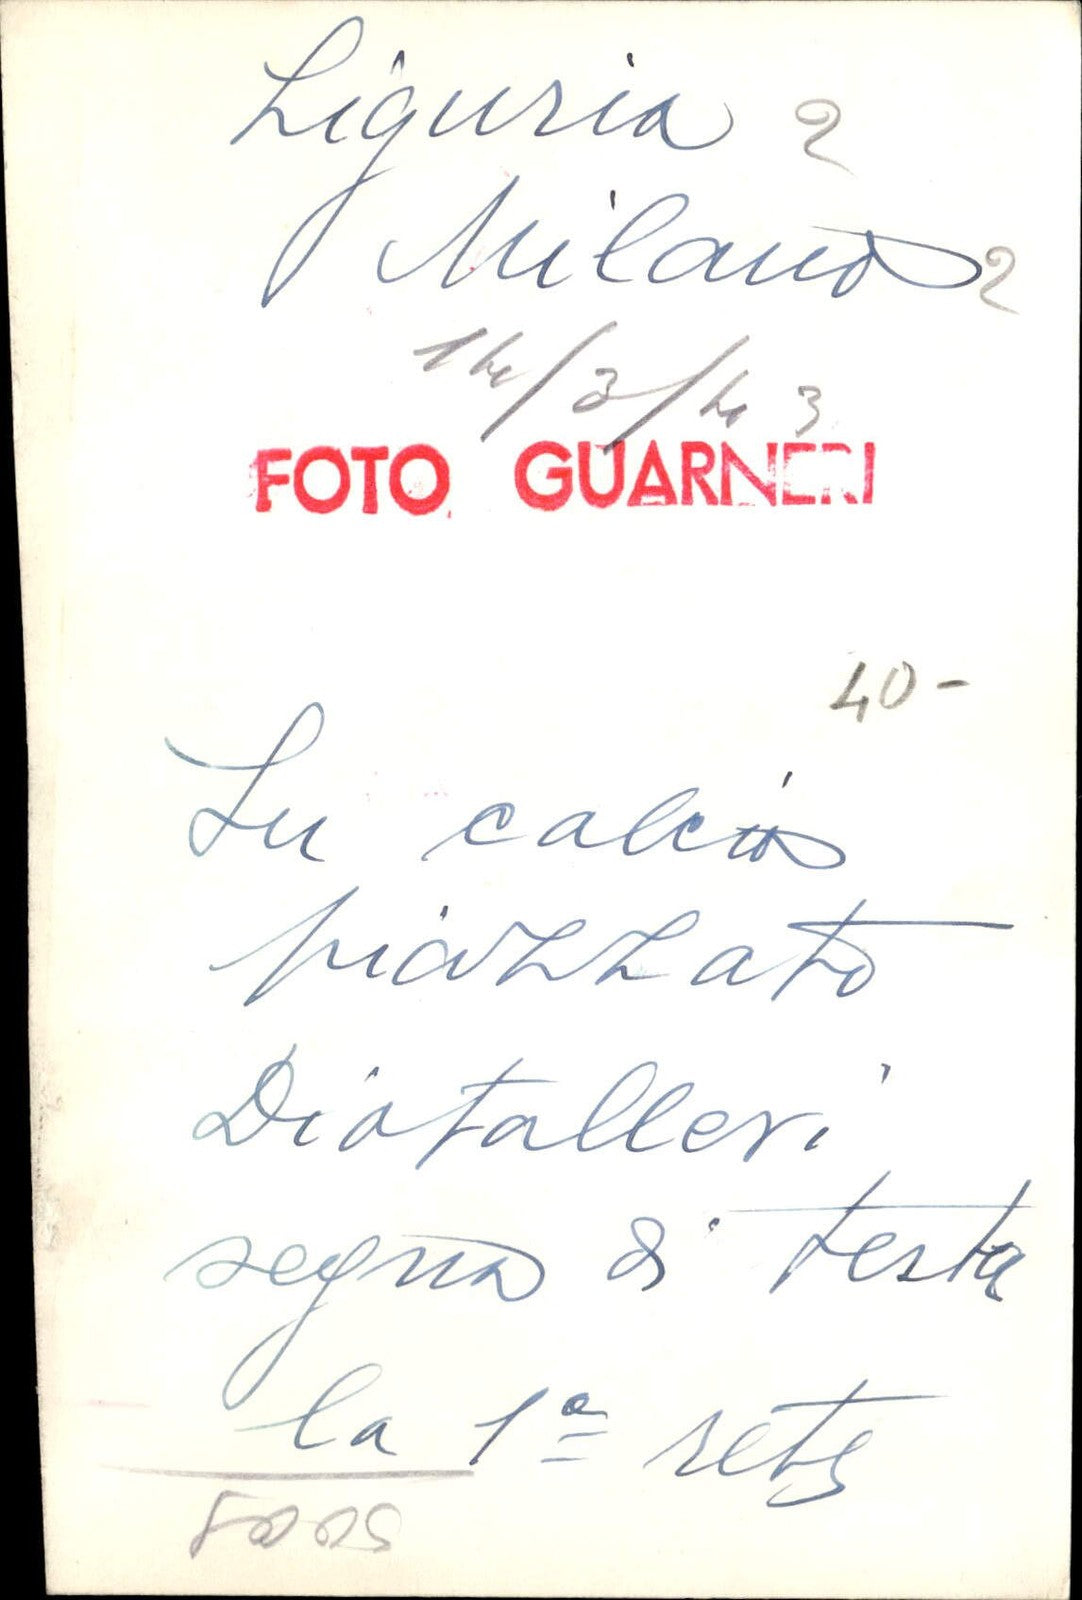 Liguria 2
Milano 2
14/3/43
FOTO GUARNERI
40-
Su calcio
piazzato
Diotalleri
segna di testa
la 1ª rete